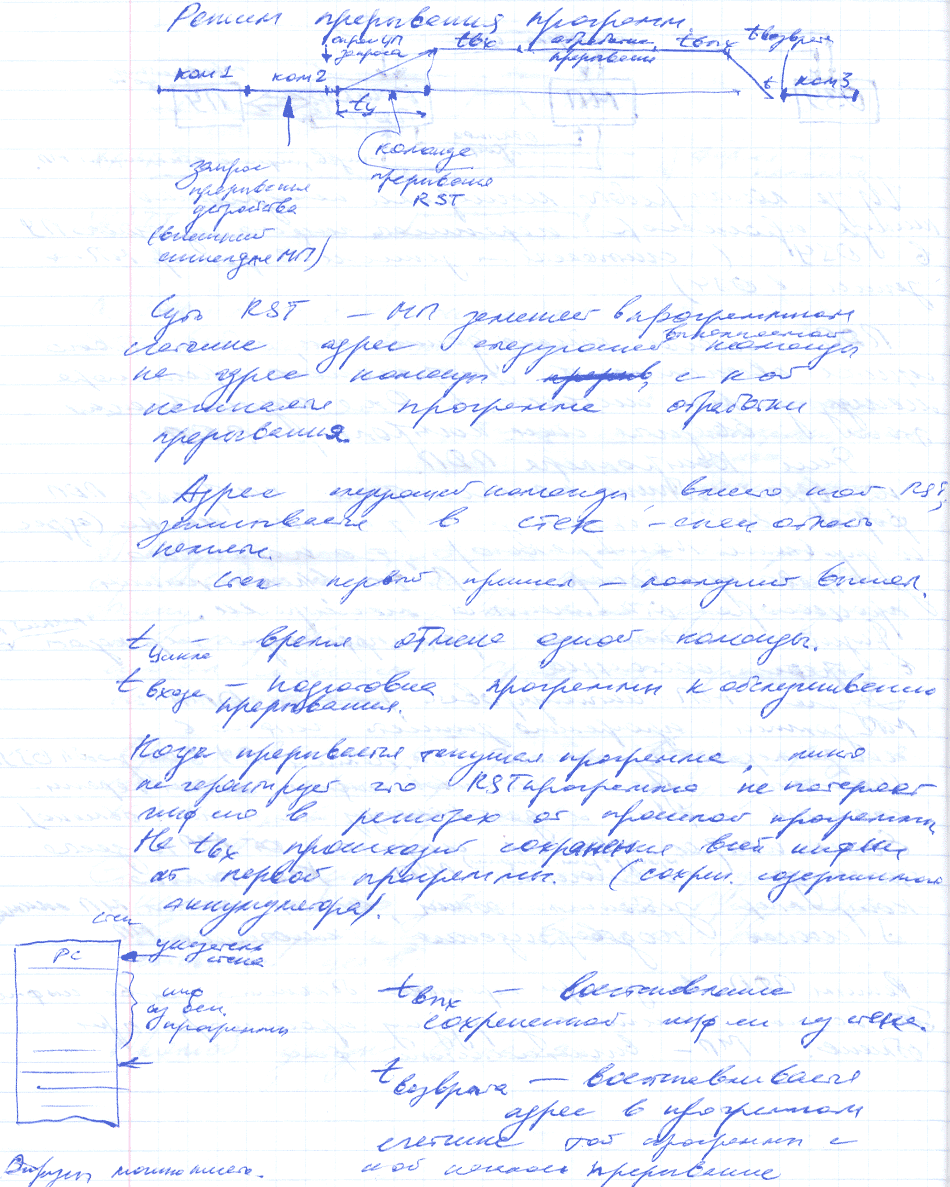 Режим прерывания программ.
сигнал
запроса
tвх
обработка
прерывания
tвых
tвозврата
ком1
ком2
tц
t
ком3
запрос
прерывания
устройства
(внешний
МП)
команда
прерывания
RST
Суть RST – МП заменяет в программном
счетчике адрес следующей выполняемой команды
на адрес команды, с кот
начинается программа обработки
прерывания.
Адрес следующей команды, вместо кот RST,
записывается в стек –
памяти.
Стек первый пришел – последний вышел.
t цикла – время одной команды.
t входа – подготовка программы к обслуживанию
прерывания.
Когда прерывается текущая программа, никто
не гарантирует что RST программа не потеряет
инф-ю в регистрах от прошлой программы
На tвх происходит сохранение всей инф-ии
от первой программы. (сохран. содержимого
аккумулятора).
стек
PC
указатель
стека
инф
из осн.
программы
tвых – восстановление
сохраненной инф-ии из стека.
tвозврата – восстанавливается
адрес в программном
счетчике той программы с
кот началось прерывание